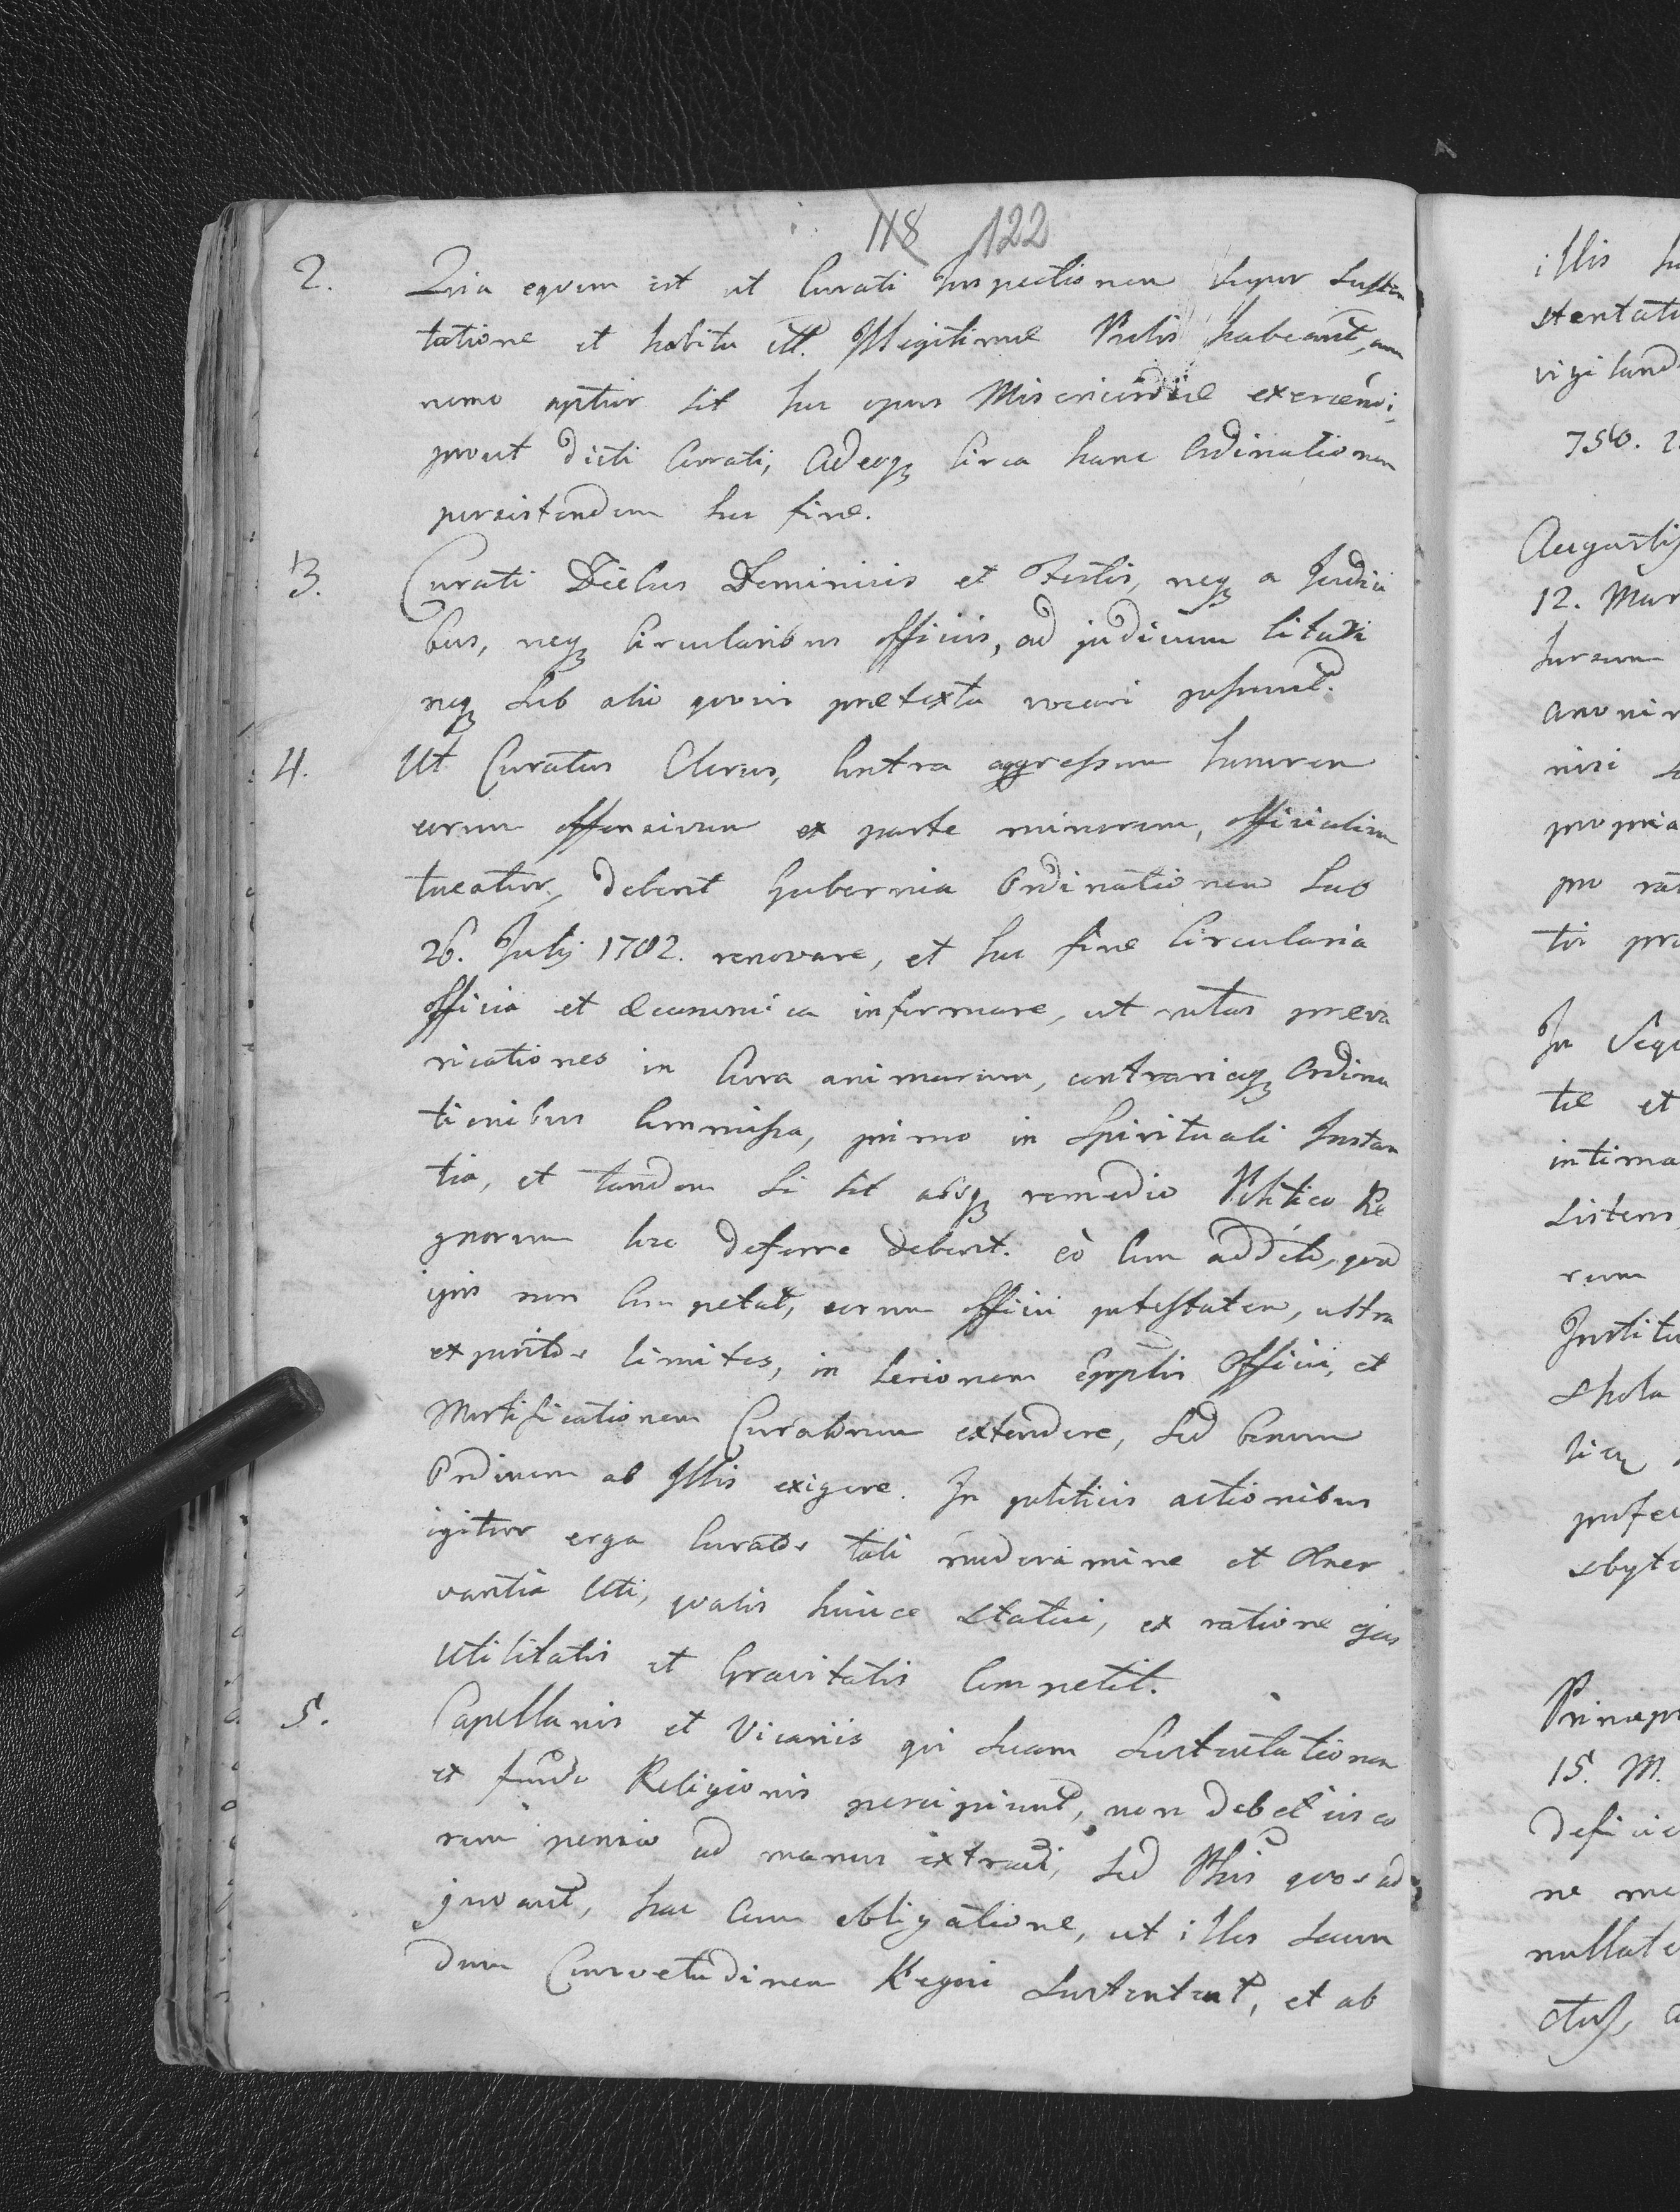 118 122
2. Quia equum est ut Curati Inspectionem super susten
tatione et habitu Illegitimae Prolis habeant, cum
nemo aptior sit hoc opus Misericordiae exercendi,
prout dicti Curati, Adeoq circa hanc Ordinationem
persistendum hoc fine.
3. Curati Diebus Dominicis et Festis, neq a Judici
bus, neq Circularibus officiis, ad judicium citari
neq sub alio quovis praetextu vocari possunt.
4. Ut Curatus Clerus, Contra aggressum honorem
eorum offensivum ex parte minorum, officialium
tueatur, debent Gubernia Ordinationem suo
26. Julij 1782. renovare, et hoc fine Circularia
officia et Oeconomica informare, ut notas praeva
ricationes in Cura animarum, contrarieq Ordina
tionibus Commissa, primo in Spirituali Instan
tia, et tandem Si sit absq remedio Politico Re
gnorum loco deferre debent. eò Cum addito, quod
ipsis non Competat, eorum officii potestatem, ultra
expositos limites, in Officii, et
Mortificationem Curatorum extendere, Sed bonum
Ordinem ab Illis exigere. In politicis actionibus
igitur erga Curatos tali moderamine et Obser
vantia Uti, qualis huicce Statui, ex ratione ejus
Utilitatis et Gravitatis Competit.
5. Capellanis et Vicariis qui Suam Sustentationem
ex fundo Religionis percipiunt, non debet iis eo
rum pensio ad manus extradi, Sed quos ad
juvant, hac Cum obligatione, ut illos Secun
dum Consvetudinem Regni Sustentent, et ab
illis
stentati
vigiland
756.
12. Mar
propria
pro
In
te et
intima
rum
Institu
Princip
15. M.
ne